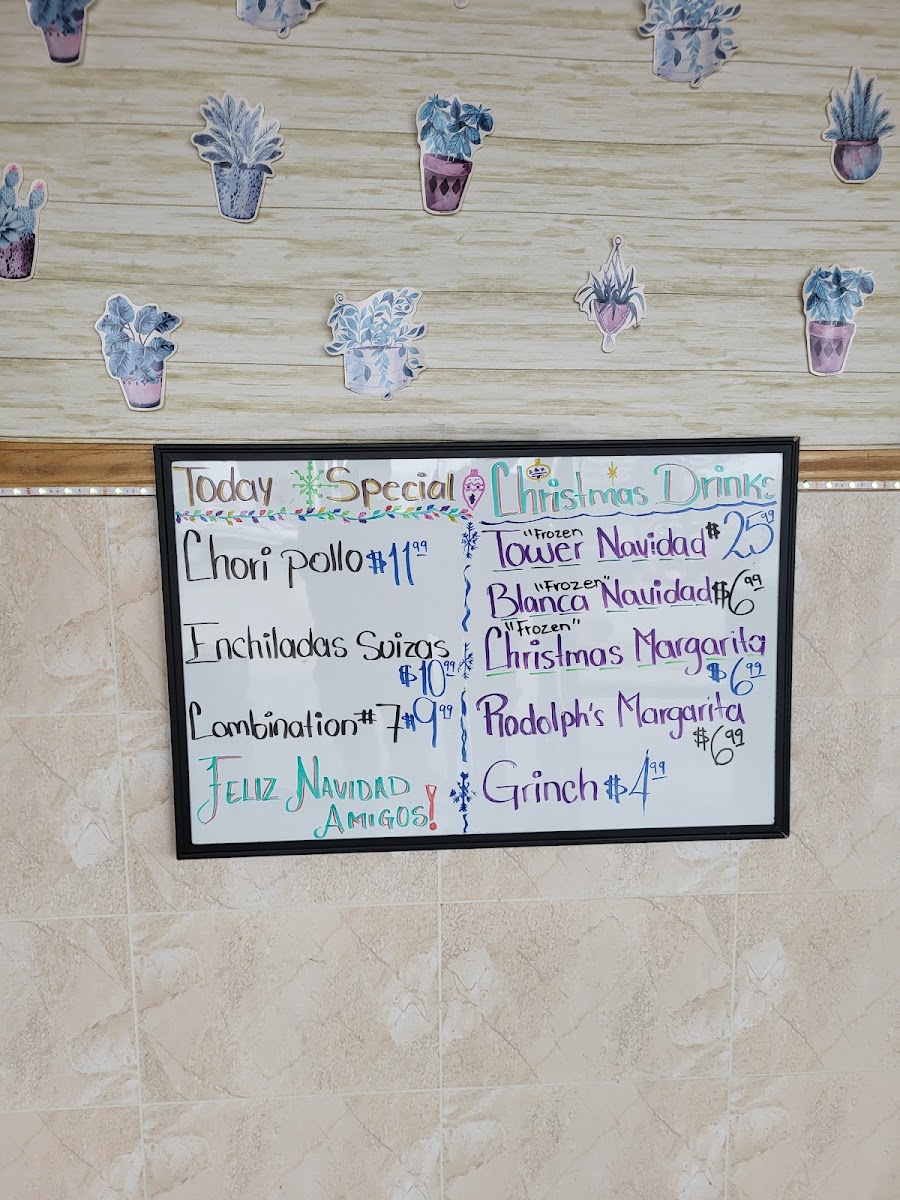 Today Special
Chori pollo $11.99
Enchiladas Suizas
$10.99
Combination #7 $9.99
FELIZ NAVIDAD
AMIGOS!
Christmas Drinks
"Frozen
Tower Navidad $25.99
"Frozen"
Blanca Navidad $6.99
"Frozen"
Christmas Margarita
$6.99
Rodolph's Margarita
$6.99
Grinch $4.99